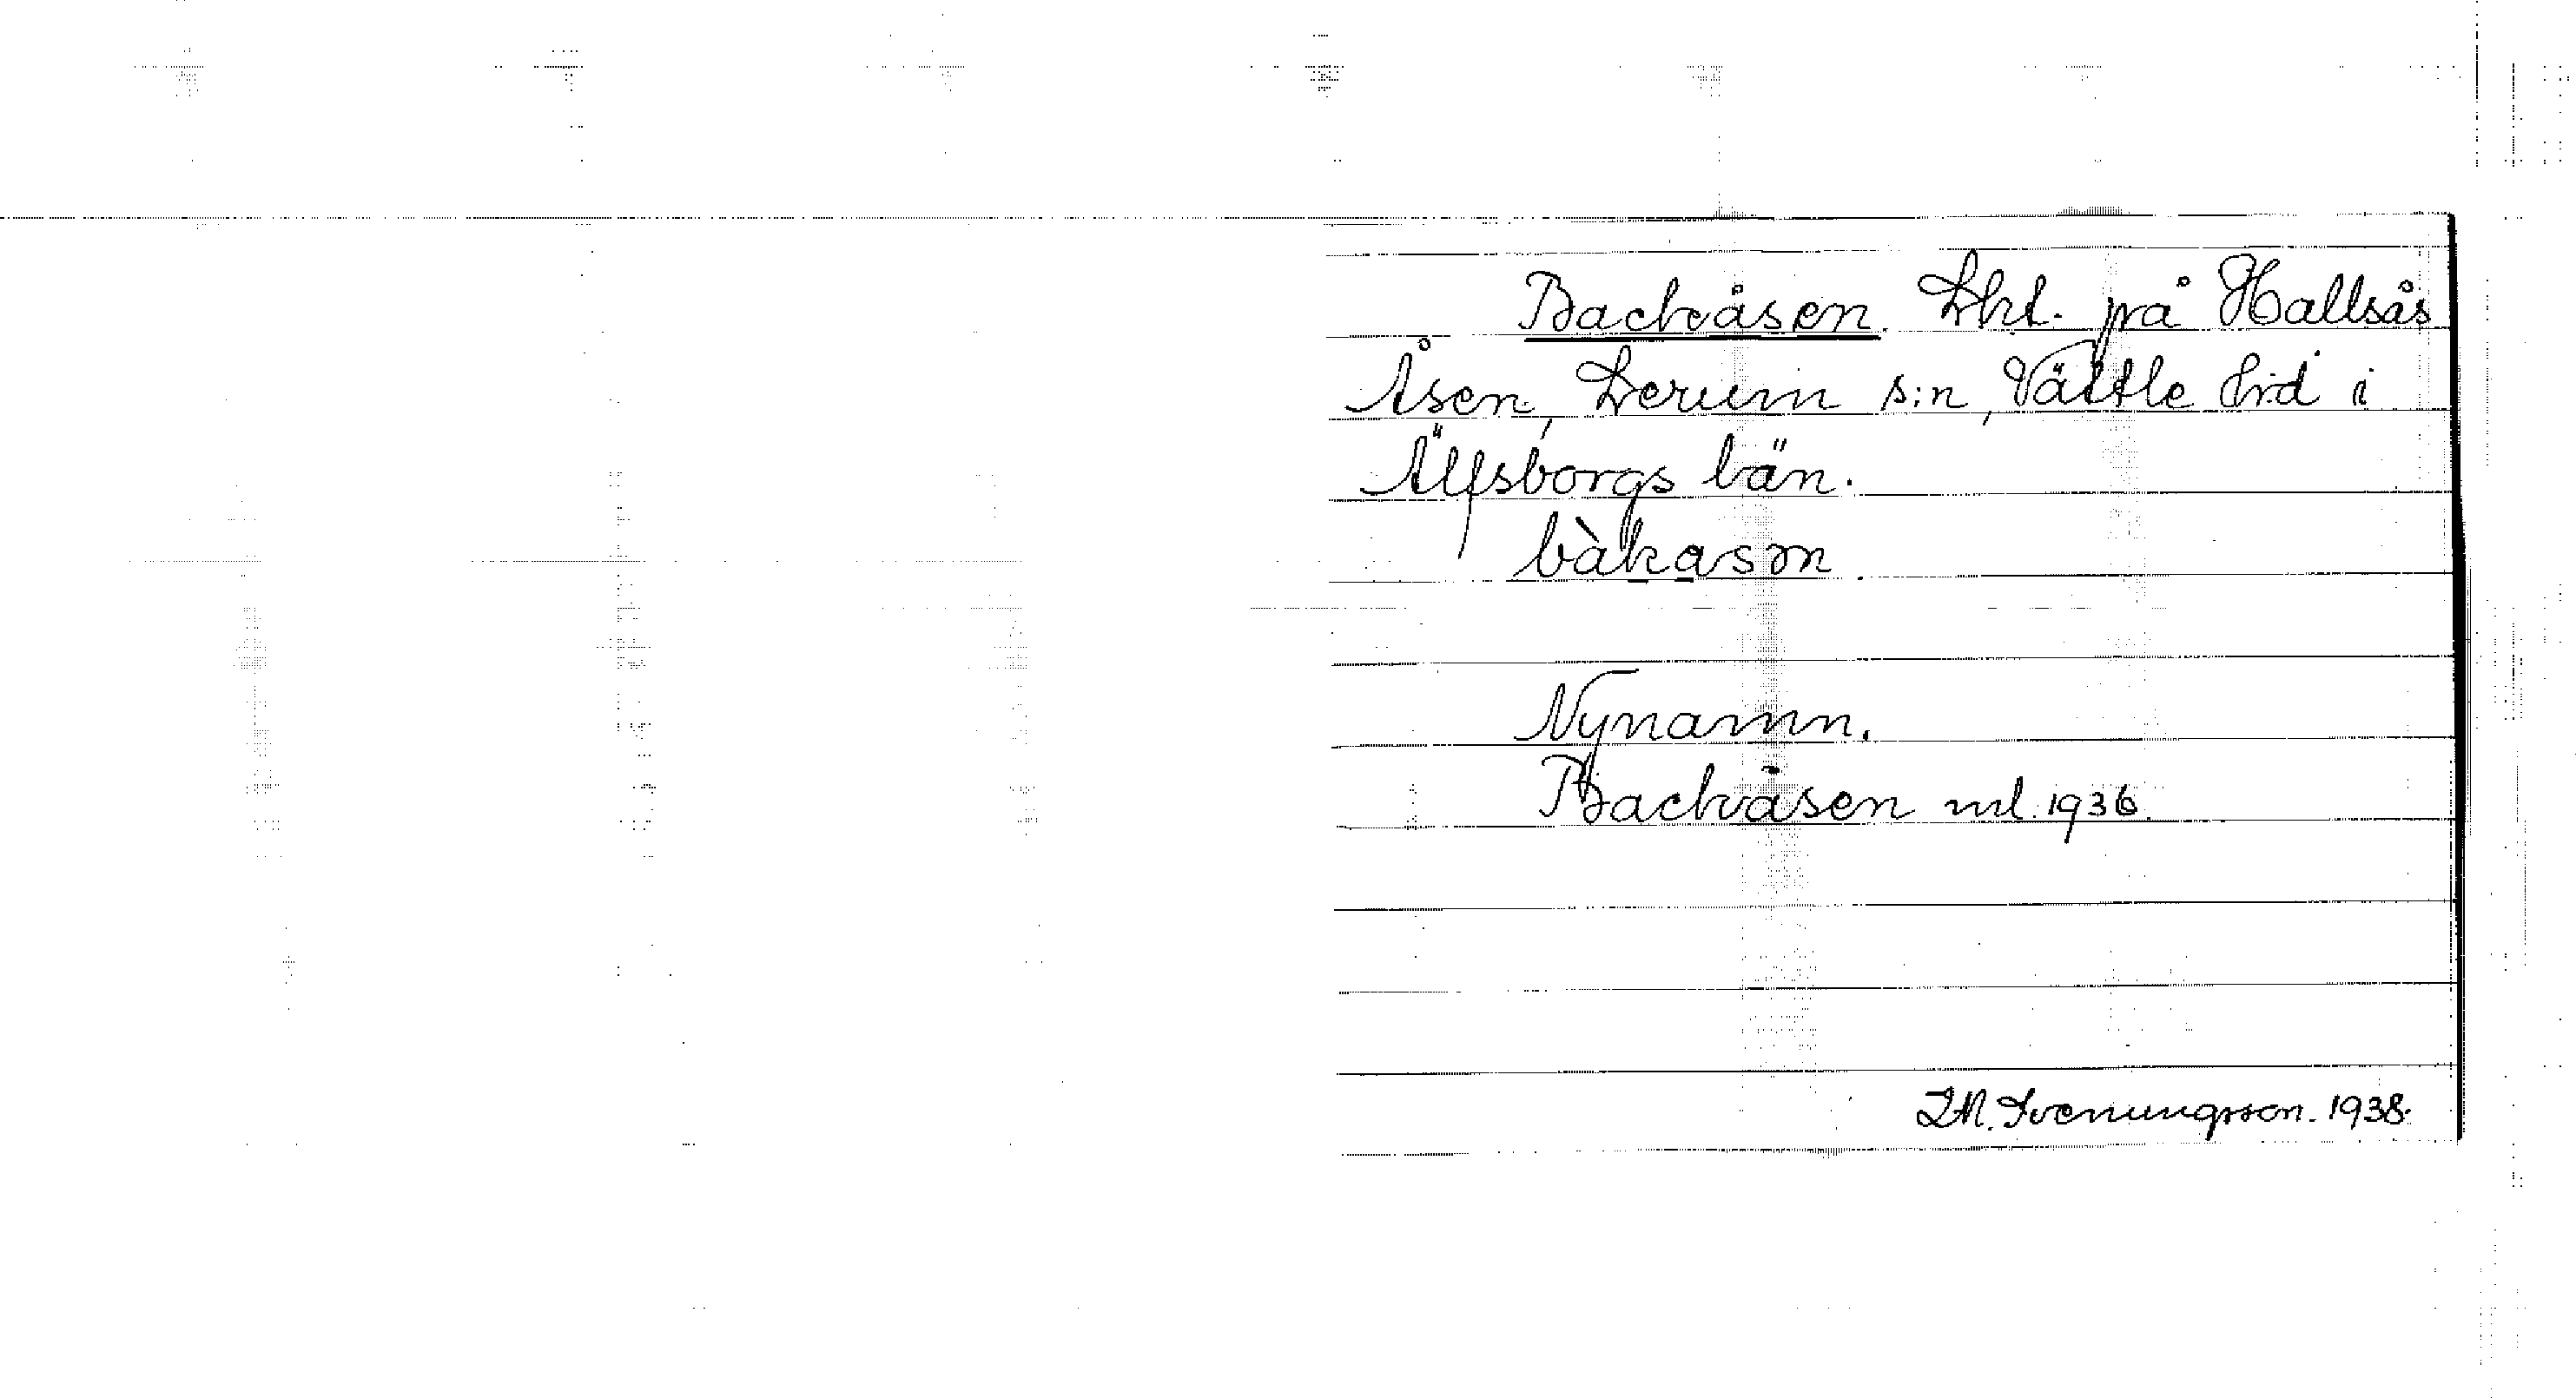 Backåsen. Lht. på Hallsås
Åsen, Lerum s:n, Vättle hd i
Älfsborgs län.
bàkasm.
Nynamn.
Backåsen ml. 1936.
Svenungsson. 1938.